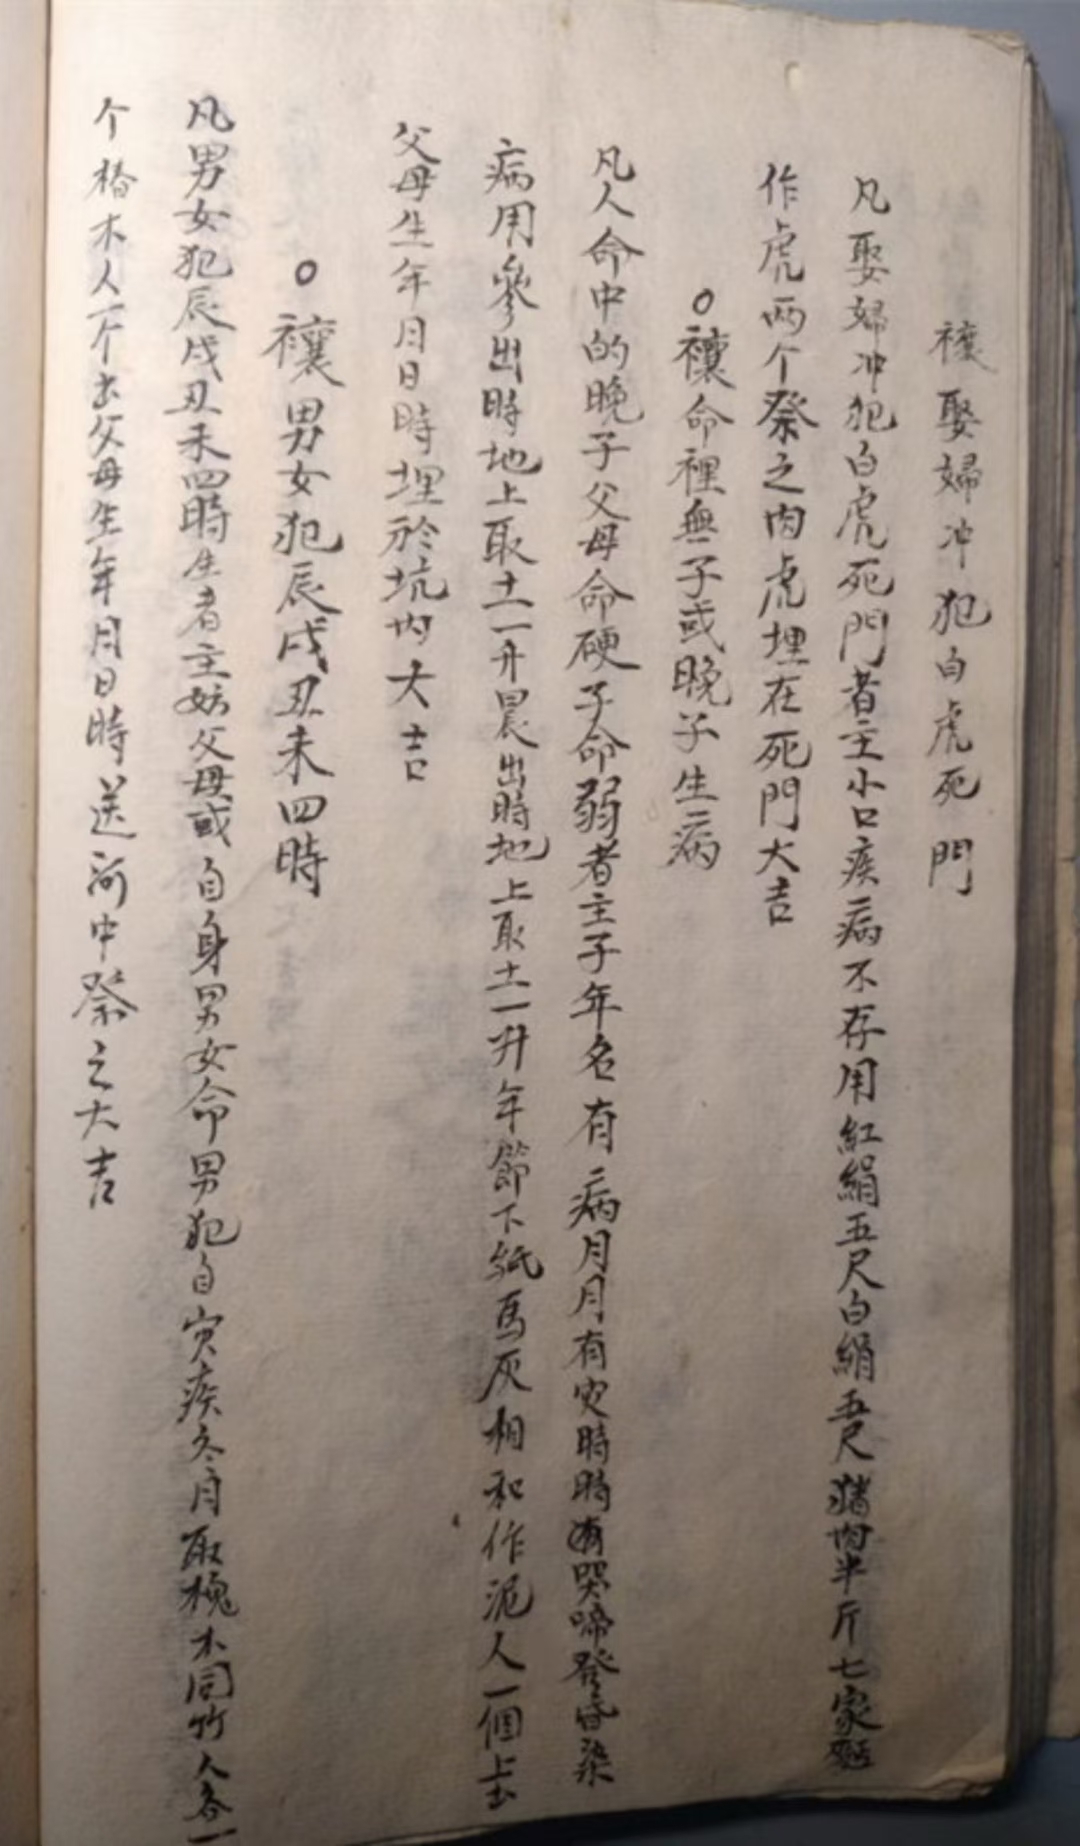 禳娶婦冲犯白虎死門
凡娶婦冲犯白虎死門者主小口疾病不存用紅絹五尺白絹五尺猪肉半斤七家麵
作虎两个祭之肉虎埋在死門大吉
○禳命裡無子或晚子生病
凡人命中的晚子父母命硬子命弱者主子年名有病月月有灾時時有哭啼登昏染
病用參出時地上取土一升晨出時地上取土一升年節下紙馬灰相和作泥人一個上書
父母生年月日時埋於坑内大吉
○禳男女犯辰戌丑未四時
凡男女犯辰戌丑未四時生者主妨父母或自身男女命男犯自灾疾冬月取槐木同竹人各一
个椿木人一个書父母生年月日時送河中祭之大吉